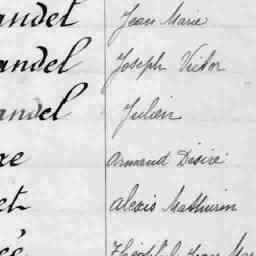 andet Jean Marie
andel Joseph Victor
andel Julien
Armand Désiré
et Alexis Mathurin